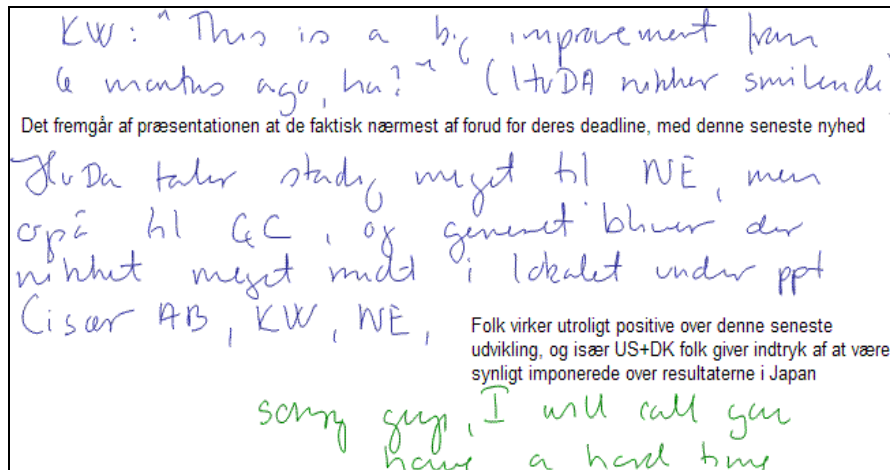 KW: "This is a big improvement from
6 months ago, ha?" (HvDA nikker smilende
Det fremgår af præsentationen at de faktisk nærmest af forud for deres deadline, med denne seneste nyhed
HvDa taler stadig meget til NE, men
også til GC, og generelt bliver der
nikket meget rundt i lokalet under ppt
(især AB, KW, NE,
Folk virker utroligt positive over denne seneste
udvikling, og især US+DK folk giver indtryk af at være
synligt imponerede over resultaterne i Japan
sorry guys, I will call you
have a hard time